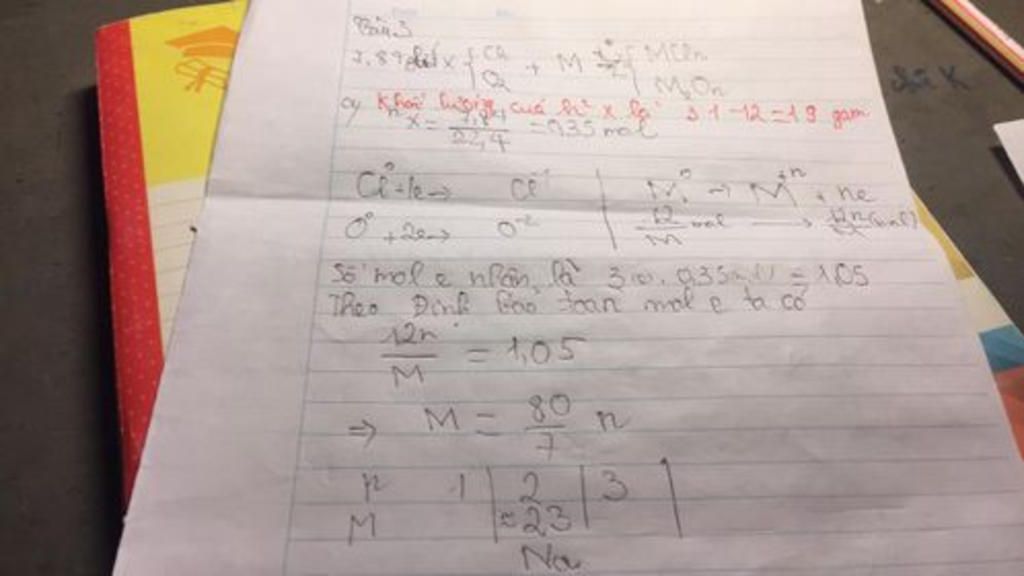 Bài 3
7,84 lít X { Cl2 O2 + M t° { MCln M2On
a) Khối lượng của hh X là 31-12=19 gam
n x = 7,84/22,4 = 0,35 mol
Cl⁰ + 1e → Cl⁻¹ | M⁰ → M⁺ⁿ + ne
O⁰ + 2e → O⁻² | 12/M mol → 12n/M (mol)
Số mol e nhận là 0,35 = 1,05
Theo Định bảo toàn mol e ta có
12n/M = 1,05
⇒ M = 80/7 n
n 1 | 2 | 3 |
M | ≈ 23 | |
Na